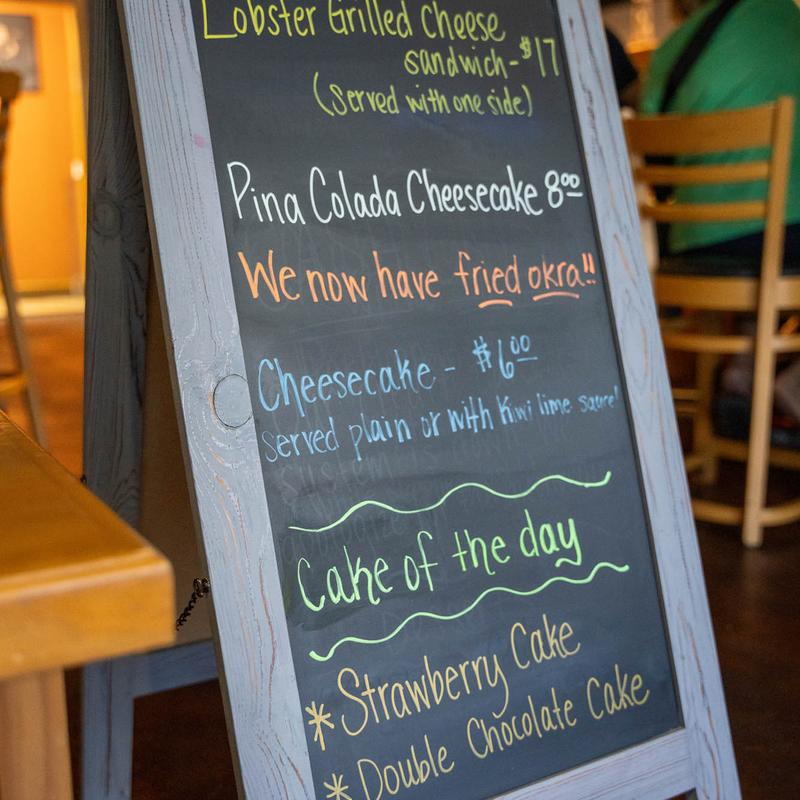 Lobster Grilled Cheese
sandwich-$17
(Served with one side)
Pina Colada Cheesecake 8⁰⁰
We now have fried okra!!
Cheesecake - $6⁰⁰
served plain or with kiwi lime sauce!
Cake of the day
* Strawberry Cake
* Double Chocolate Cake